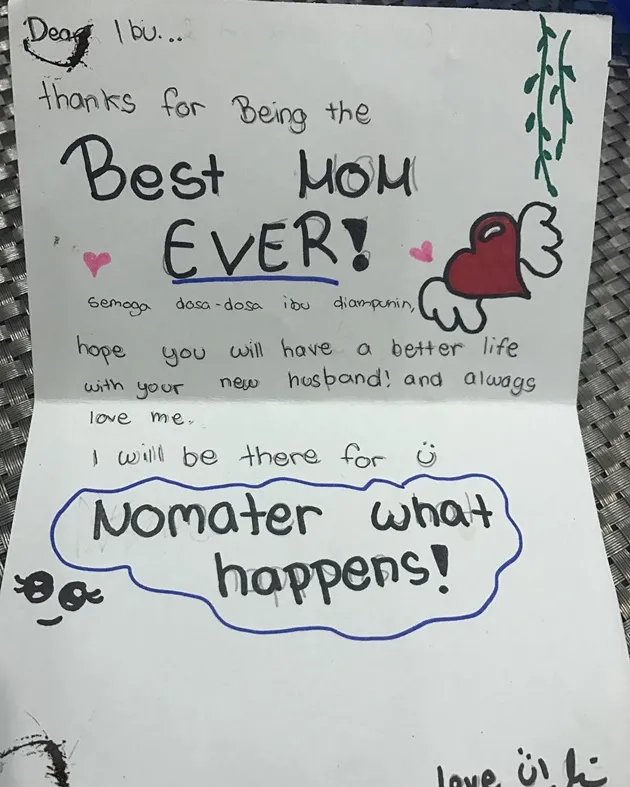 Dear Ibu...
thanks for Being the
Best MOM
EVER!
Semoga dosa-dosa ibu diampunin,
hope you will have a better life
with your new husband! and always
love me.
I will be there for Ü
Nomater what
happens!
love